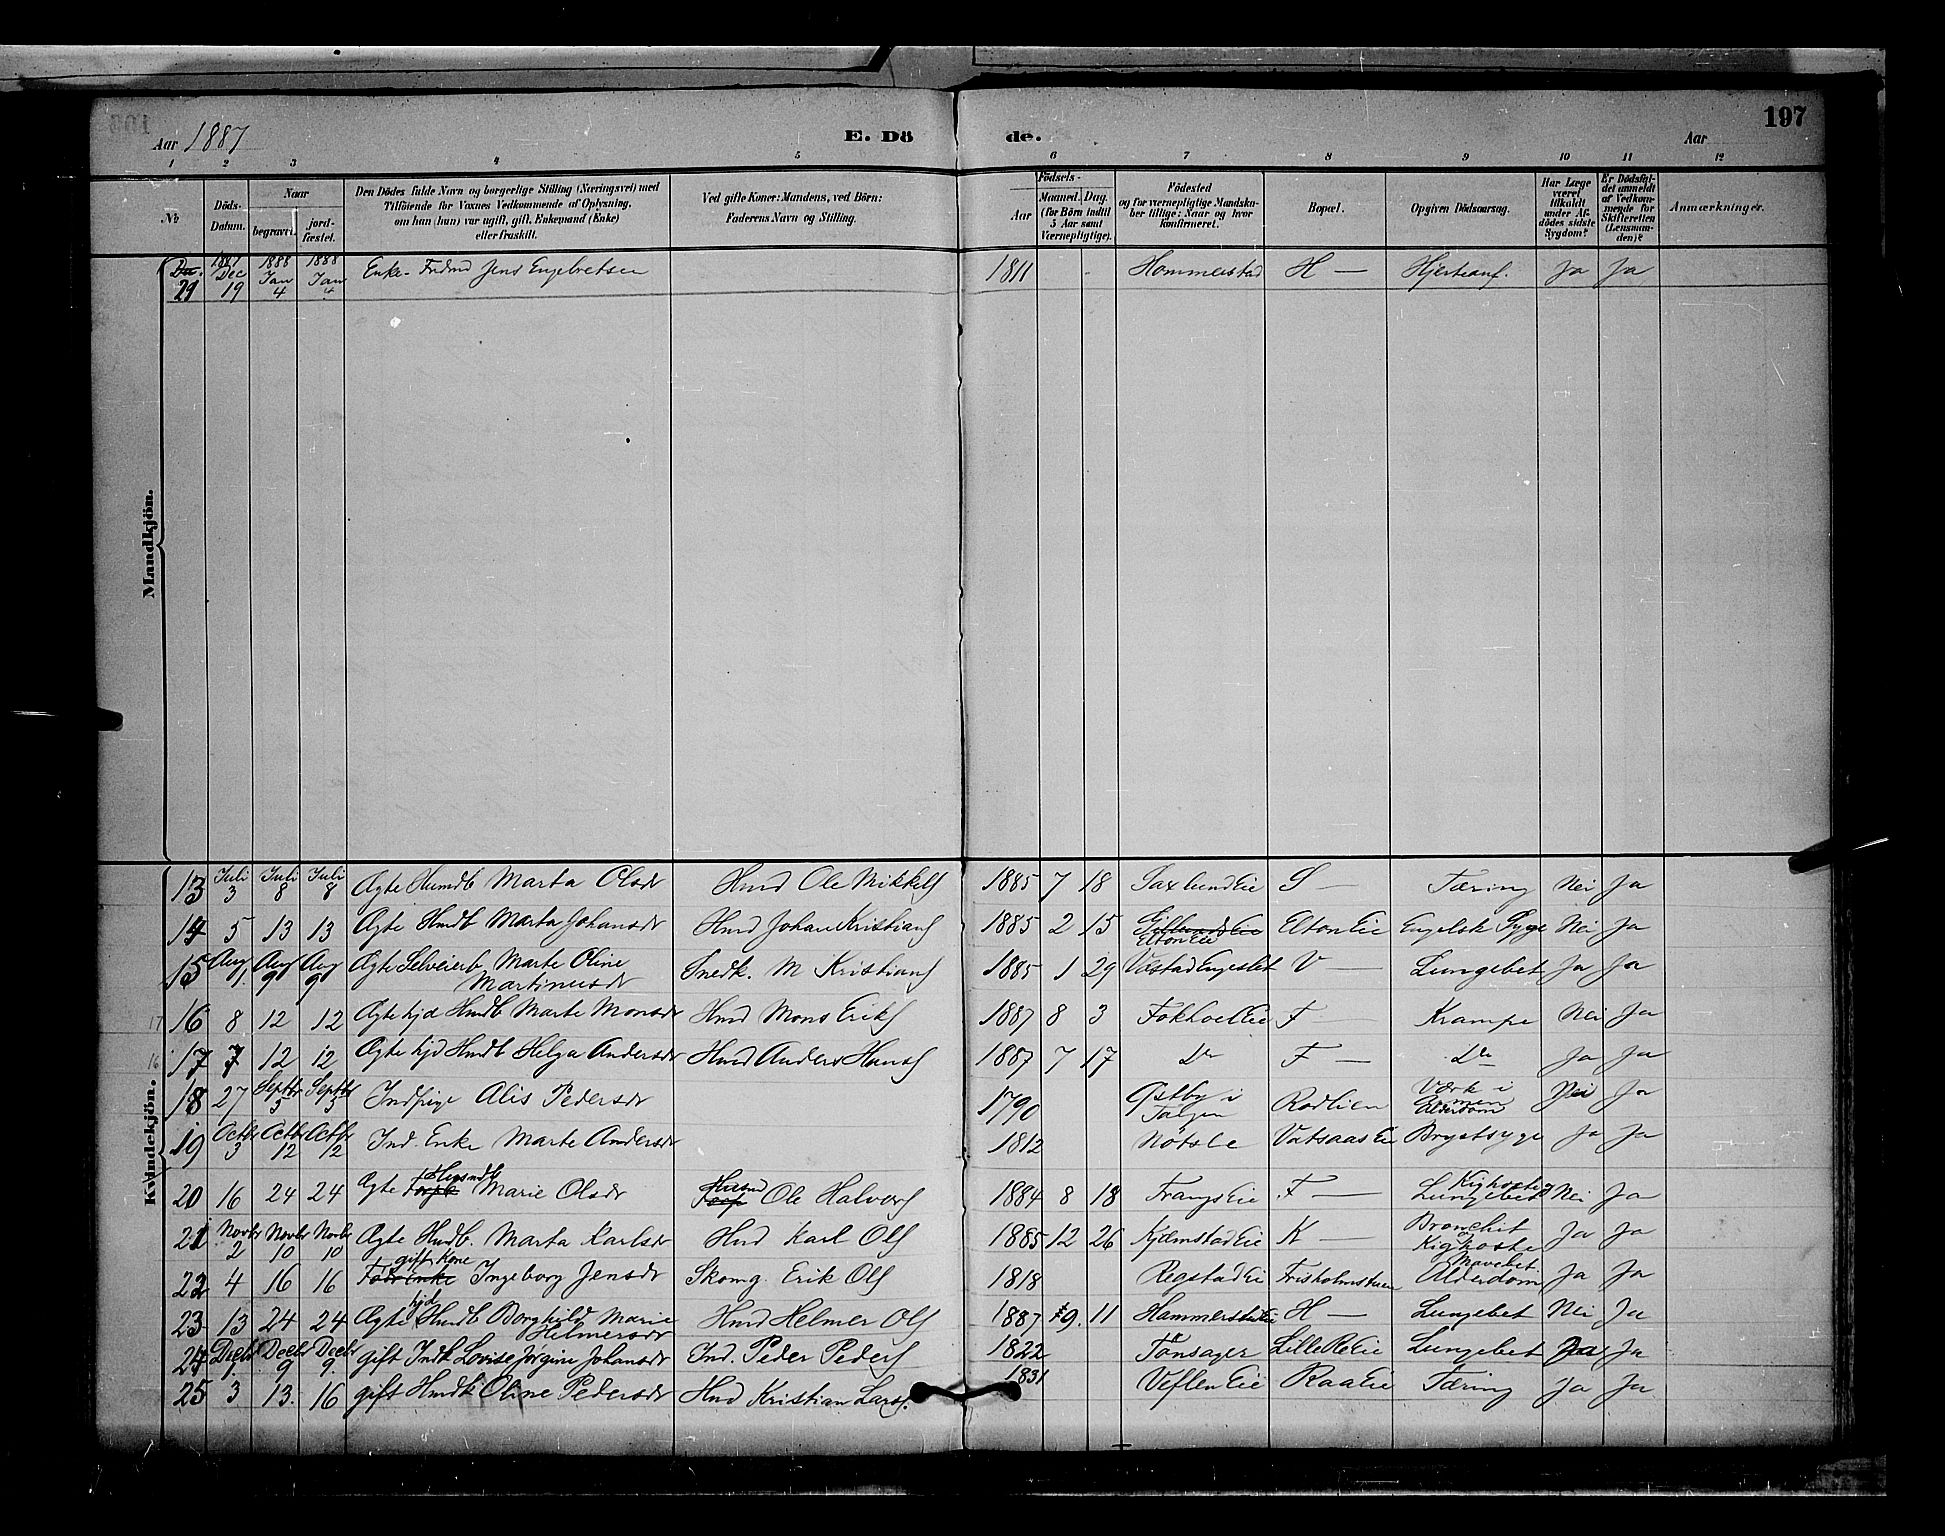 197
Aar 1887 E. Dö de. Aar
1 2 3 4 5 6 7 8 9 10 11 12
No
Döds-Datum.
Naar begravet. jord-fæstet.
Den Dödes fulde Navn og borgerlige Stilling (Næringsvei) med
Tilföiende for Voxnes Vedkommende af Oplysning,
om han (hun) var ugift, gift, Enkemand (Enke)
eller fraskilt.
Ved gifte Koner: Mandens, ved Börn:
Faderens Navn og Stilling.
Födsels-
Aar Maaned. Dag.
(for Börn indtil
5 Aar samt
Værnepligtige).
Födested
og for værnepligtige Mandska-
ber tillige: Naar og hvor
konfirmeret.
Bopæl.
Opgiven Dödsaarsag.
Har Læge
været
tilkaldt
under Af-
dödes sidste
Sygdom?
Er Dödsfal-
det anmeldt
af Vedkom-
mende for
Skifteretten
(Lensman-
den)?
Anmærkninger.
Mandkjön.
21 1887 Dec 19 1888 Jan 4 1888 Jan 4 Enke- Jens Engebretsen 1811 Hommerstad H — Hjerteanf. Ja Ja
Kvindekjön.
13 Juli 3 Juli 8 Juli 8 Ægte Husmdb Marta Olsdr Husmd Ole Mikkels 1885 7 18 Saxlund Eie S — Tæring Nei Ja
14 5 13 13 Ægte Husmdb Marta Johansdr Husmd Johan Kristians 1885 2 15 Elton Eie Elton Eie Engelsk Syge Nei Ja
15 Aug 1. Aug 9 Aug 9 Ægte Selveierb Marte Oline Martinusdr Snedk. M Kristians 1885 1 29 Væstad Engeslet V — Lungebet Ja Ja
17 16 8 12 12 Ægte hjd Husmdb Marte Monsdr Husmd Mons Eriks 1887 8 3 Fokhol Eie F — Krampe Nei Ja
16 17 7 12 12 Ægte hjd Husmdb Helga Andersdr Husmd Anders Hans 1887 7 17 Do F — Do Ja Ja
18 27 Septbr 5 Septbr 5 Indpige Alis Pedersdr 1790 Østby i Tolgen Rodlien Værk i Armen Alderdom Nei Ja
19 Octbr 3 Octbr 12 Octbr 12 Ind. Enke Marte Andersdr 1812 Nötsle Vatsaas Eie Brystsyge Ja Ja
20 16 24 24 Ægte Husmdb Marie Olsdr Husmd Ole Halvors 1884 8 18 Frangs Eie F — Kighoste Lungebet Nei Ja
21 Novbr 2 Novbr 10 Novbr 10 Ægte Husmdb. Marta Karlsdr Husmd Karl Ols 1885 12 26 Kjemstad Eie K — Bronchit Kighoste Ja Ja
22 4 16 16 gift Kone Ingeborg Jensdr Skomg. Erik Ols 1818 Regstad Eie Frisholmstuen Mavebet Alderdom Ja Ja
23 13 24 24 Ægte hjd Husmdb Borghild Marie Helmersdr Husmd Helmer Ols 1887 9. 11 Hammerstad Eie H — Lungebet Nei Ja
24 Decbr 1. Decbr 9 Decbr 9. gift Indk Lovise Jørgine Johansdr Ind. Peder Peders 1822 Tönsager Lille Re Eie Lungebet Ja Ja
25 3 13. 16 gift Husmdk Oline Pedersdr Husmd Kristian Lars. 1831 Veflen Eie Raa Eie Tæring Ja Ja